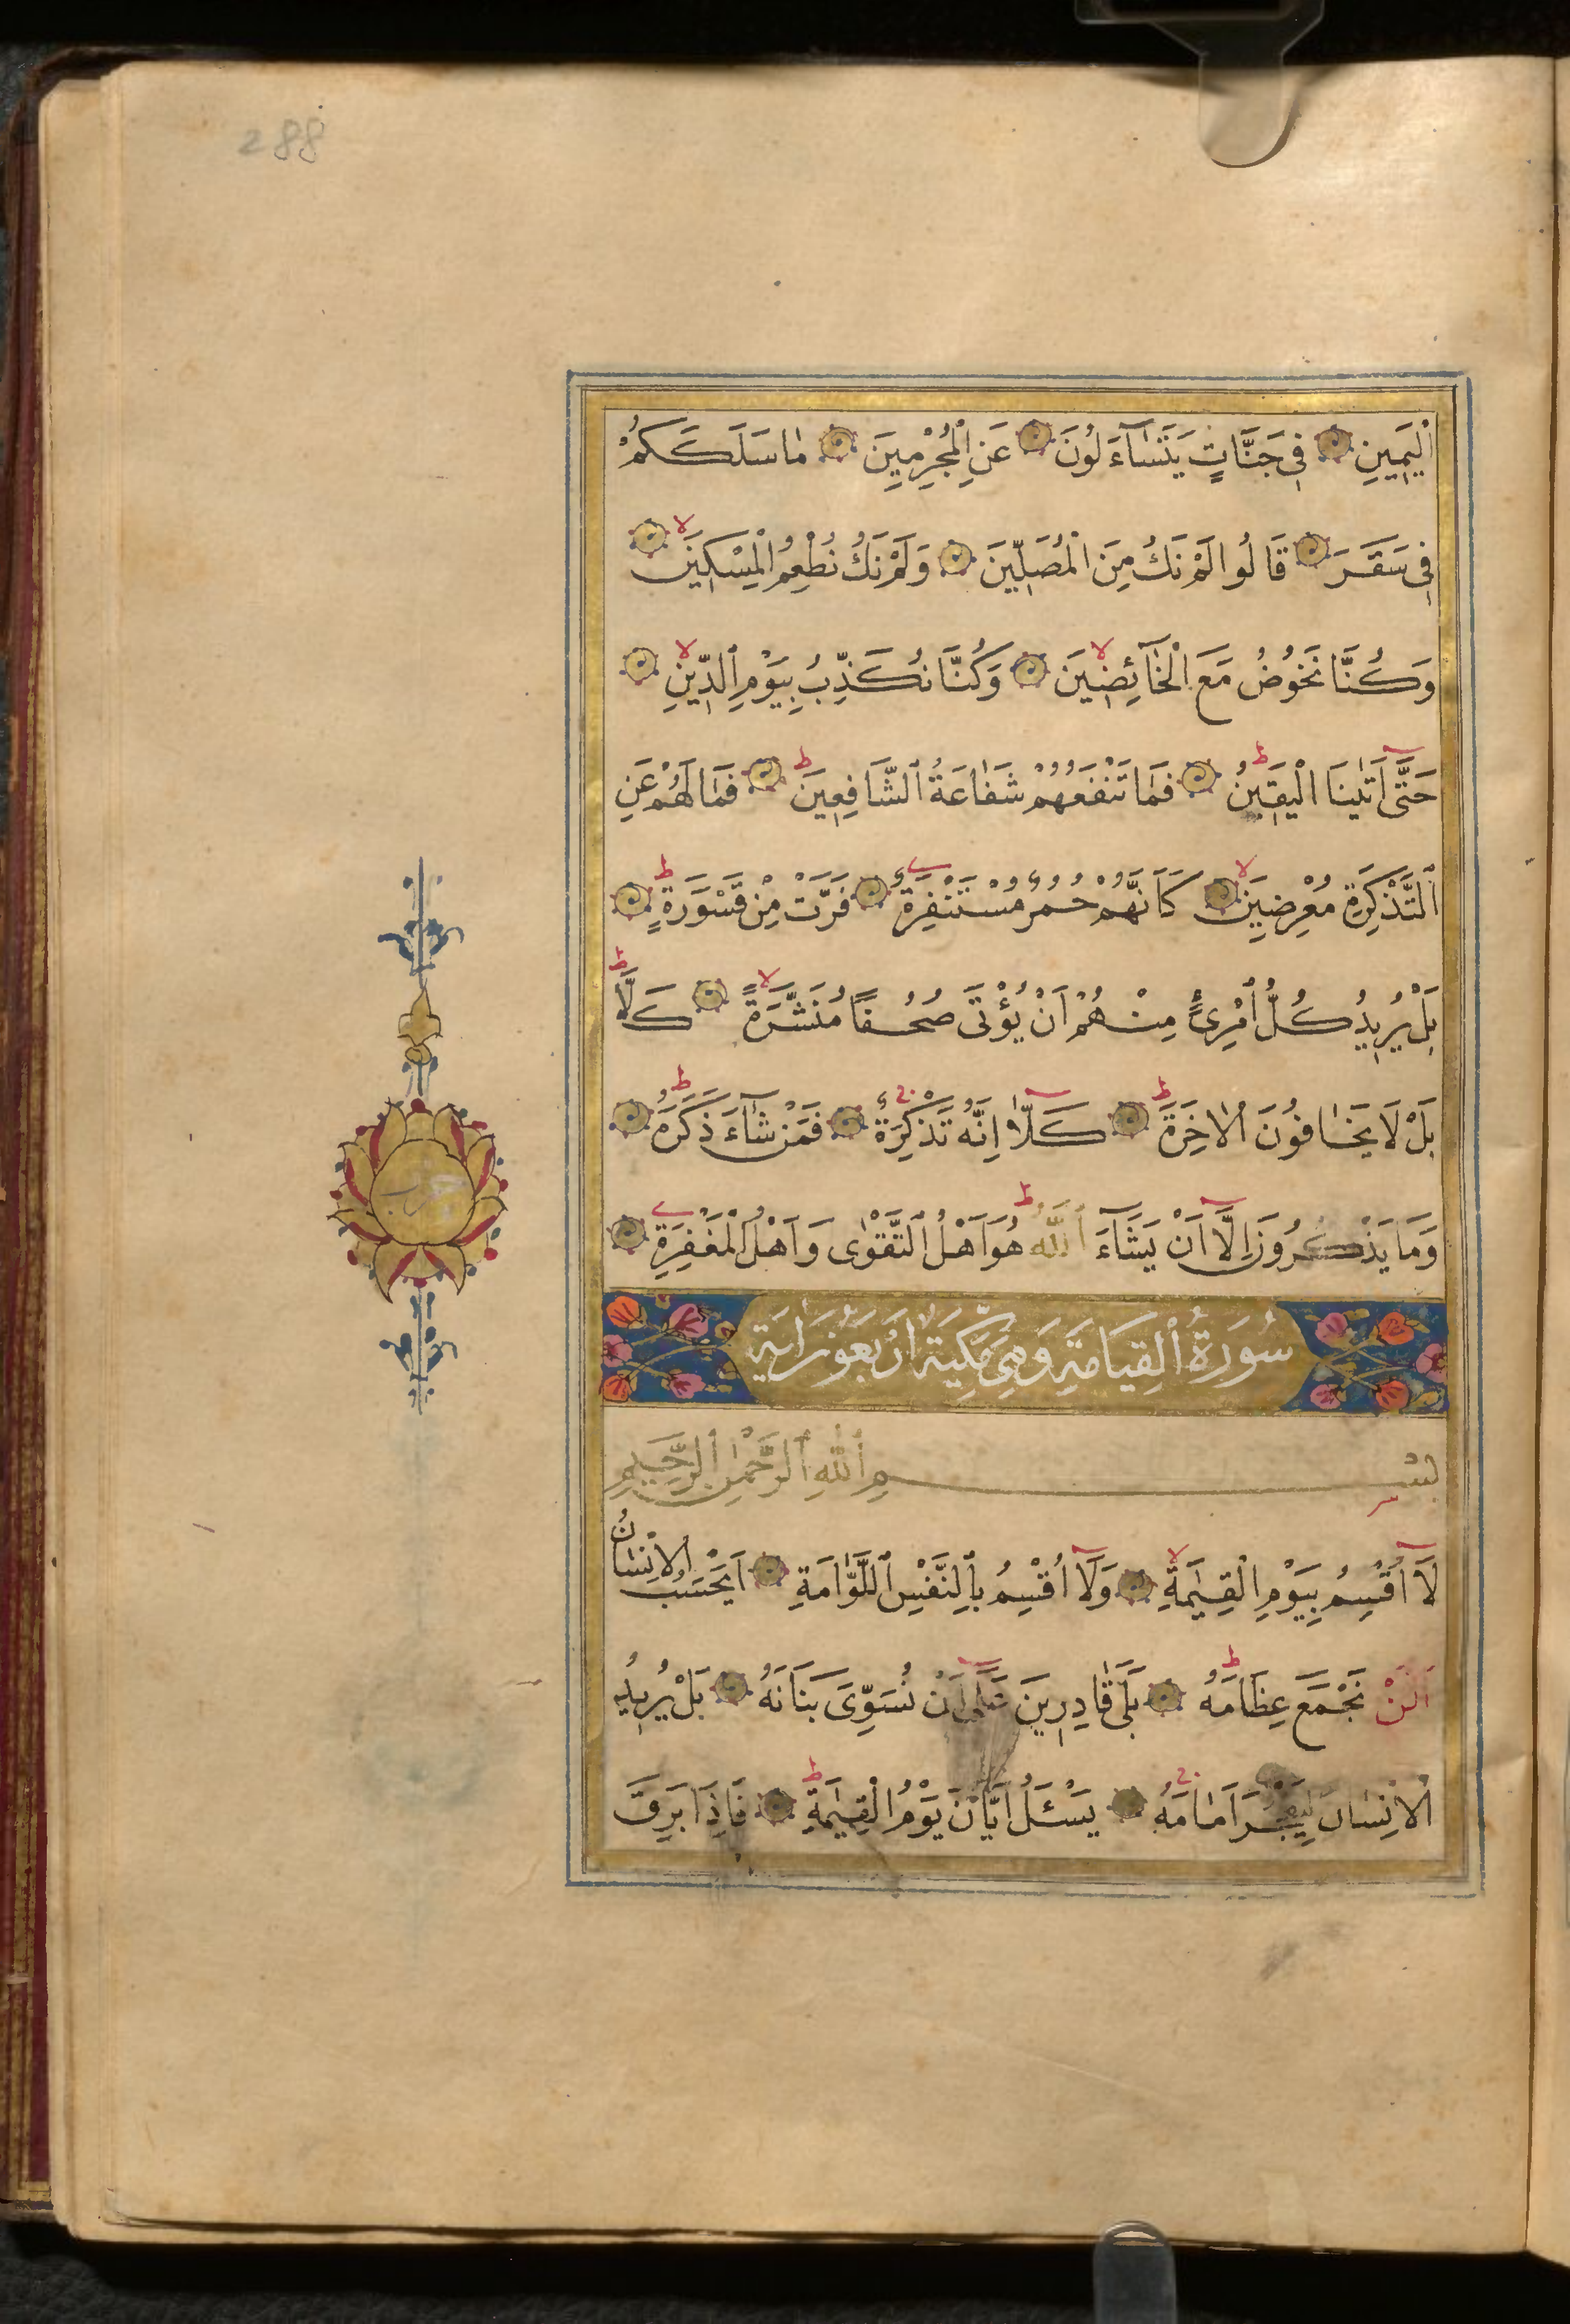 288
الْيَمِينِ فِي جَنَّاتٍ يَتَسَاۤءَلُونَ عَنِ الْمُجْرِمِينَ مَا سَلَكَكُمْ
فِي سَقَرَ قَالُوا لَمْ نَكُ مِنَ الْمُصَلِّينَ وَلَمْ نَكُ نُطْعِمُ الْمِسْكِينَ
وَكُنَّا نَخُوضُ مَعَ الْخَاۤئِضِينَ وَكُنَّا نُكَذِّبُ بِيَوْمِ الدِّينِ
حَتَّى اَتٰينَا الْيَقِينُ فَمَا تَنْفَعُهُمْ شَفَاعَةُ الشَّافِعِينَ فَمَا لَهُمْ عَنِ
التَّذْكِرَةِ مُعْرِضِينَ كَاَنَّهُمْ حُمُرٌ مُسْتَنْفِرَةٌ فَرَّتْ مِنْ قَسْوَرَةٍ
بَلْ يُرِيدُ كُلُّ امْرِئٍ مِنْهُمْ اَنْ يُؤْتَى صُحُفًا مُنَشَّرَةً كَلَّا
بَلْ لَا يَخَافُونَ الْاٰخِرَةَ كَلَّا اِنَّهُ تَذْكِرَةٌ فَمَنْ شَاۤءَ ذَكَرَهُ
وَمَا يَذْكُرُونَ اِلَّا اَنْ يَشَاۤءَ اللّٰهُ هُوَ اَهْلُ التَّقْوٰى وَاَهْلُ الْمَغْفِرَةِ
سُورَةُ الْقِيَامَةِ وَهِيَ مَكِّيَّة اَرْبَعُونَ اٰيَة
بِسْمِ اللّٰهِ الرَّحْمٰنِ الرَّحِيمِ
لَاۤ اُقْسِمُ بِيَوْمِ الْقِيٰمَةِ وَلَاۤ اُقْسِمُ بِالنَّفْسِ اللَّوَّامَةِ اَيَحْسَبُ الْاِنْسَانُ
اَلَّنْ نَجْمَعَ عِظَامَهُ بَلَى قَادِرِينَ عَلٰۤى اَنْ نُسَوِّيَ بَنَانَهُ بَلْ يُرِيدُ
الْاِنْسَانُ لِيَفْجُرَ اَمَامَهُ يَسْئَلُ اَيَّانَ يَوْمُ الْقِيٰمَةِ فَاِذَا بَرِقَ
حزب